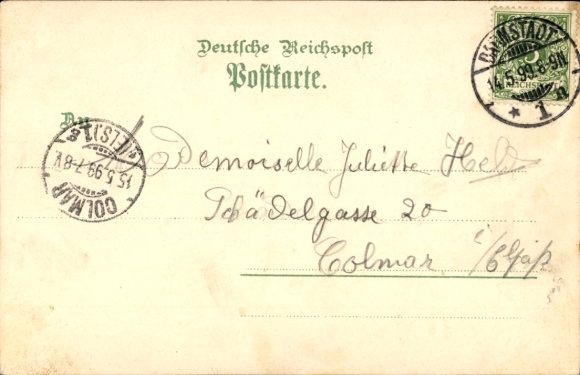 Deutsche Reichspost
Postkarte.
DARMSTADT
14.5.99.8-9N.
* 1 n
An
COLMAR
15.5.99.7-8V.
*(ELS.)1.a
Demoiselle Juliette Helz
Schädelgasse 20
Colmar i/Elsaß